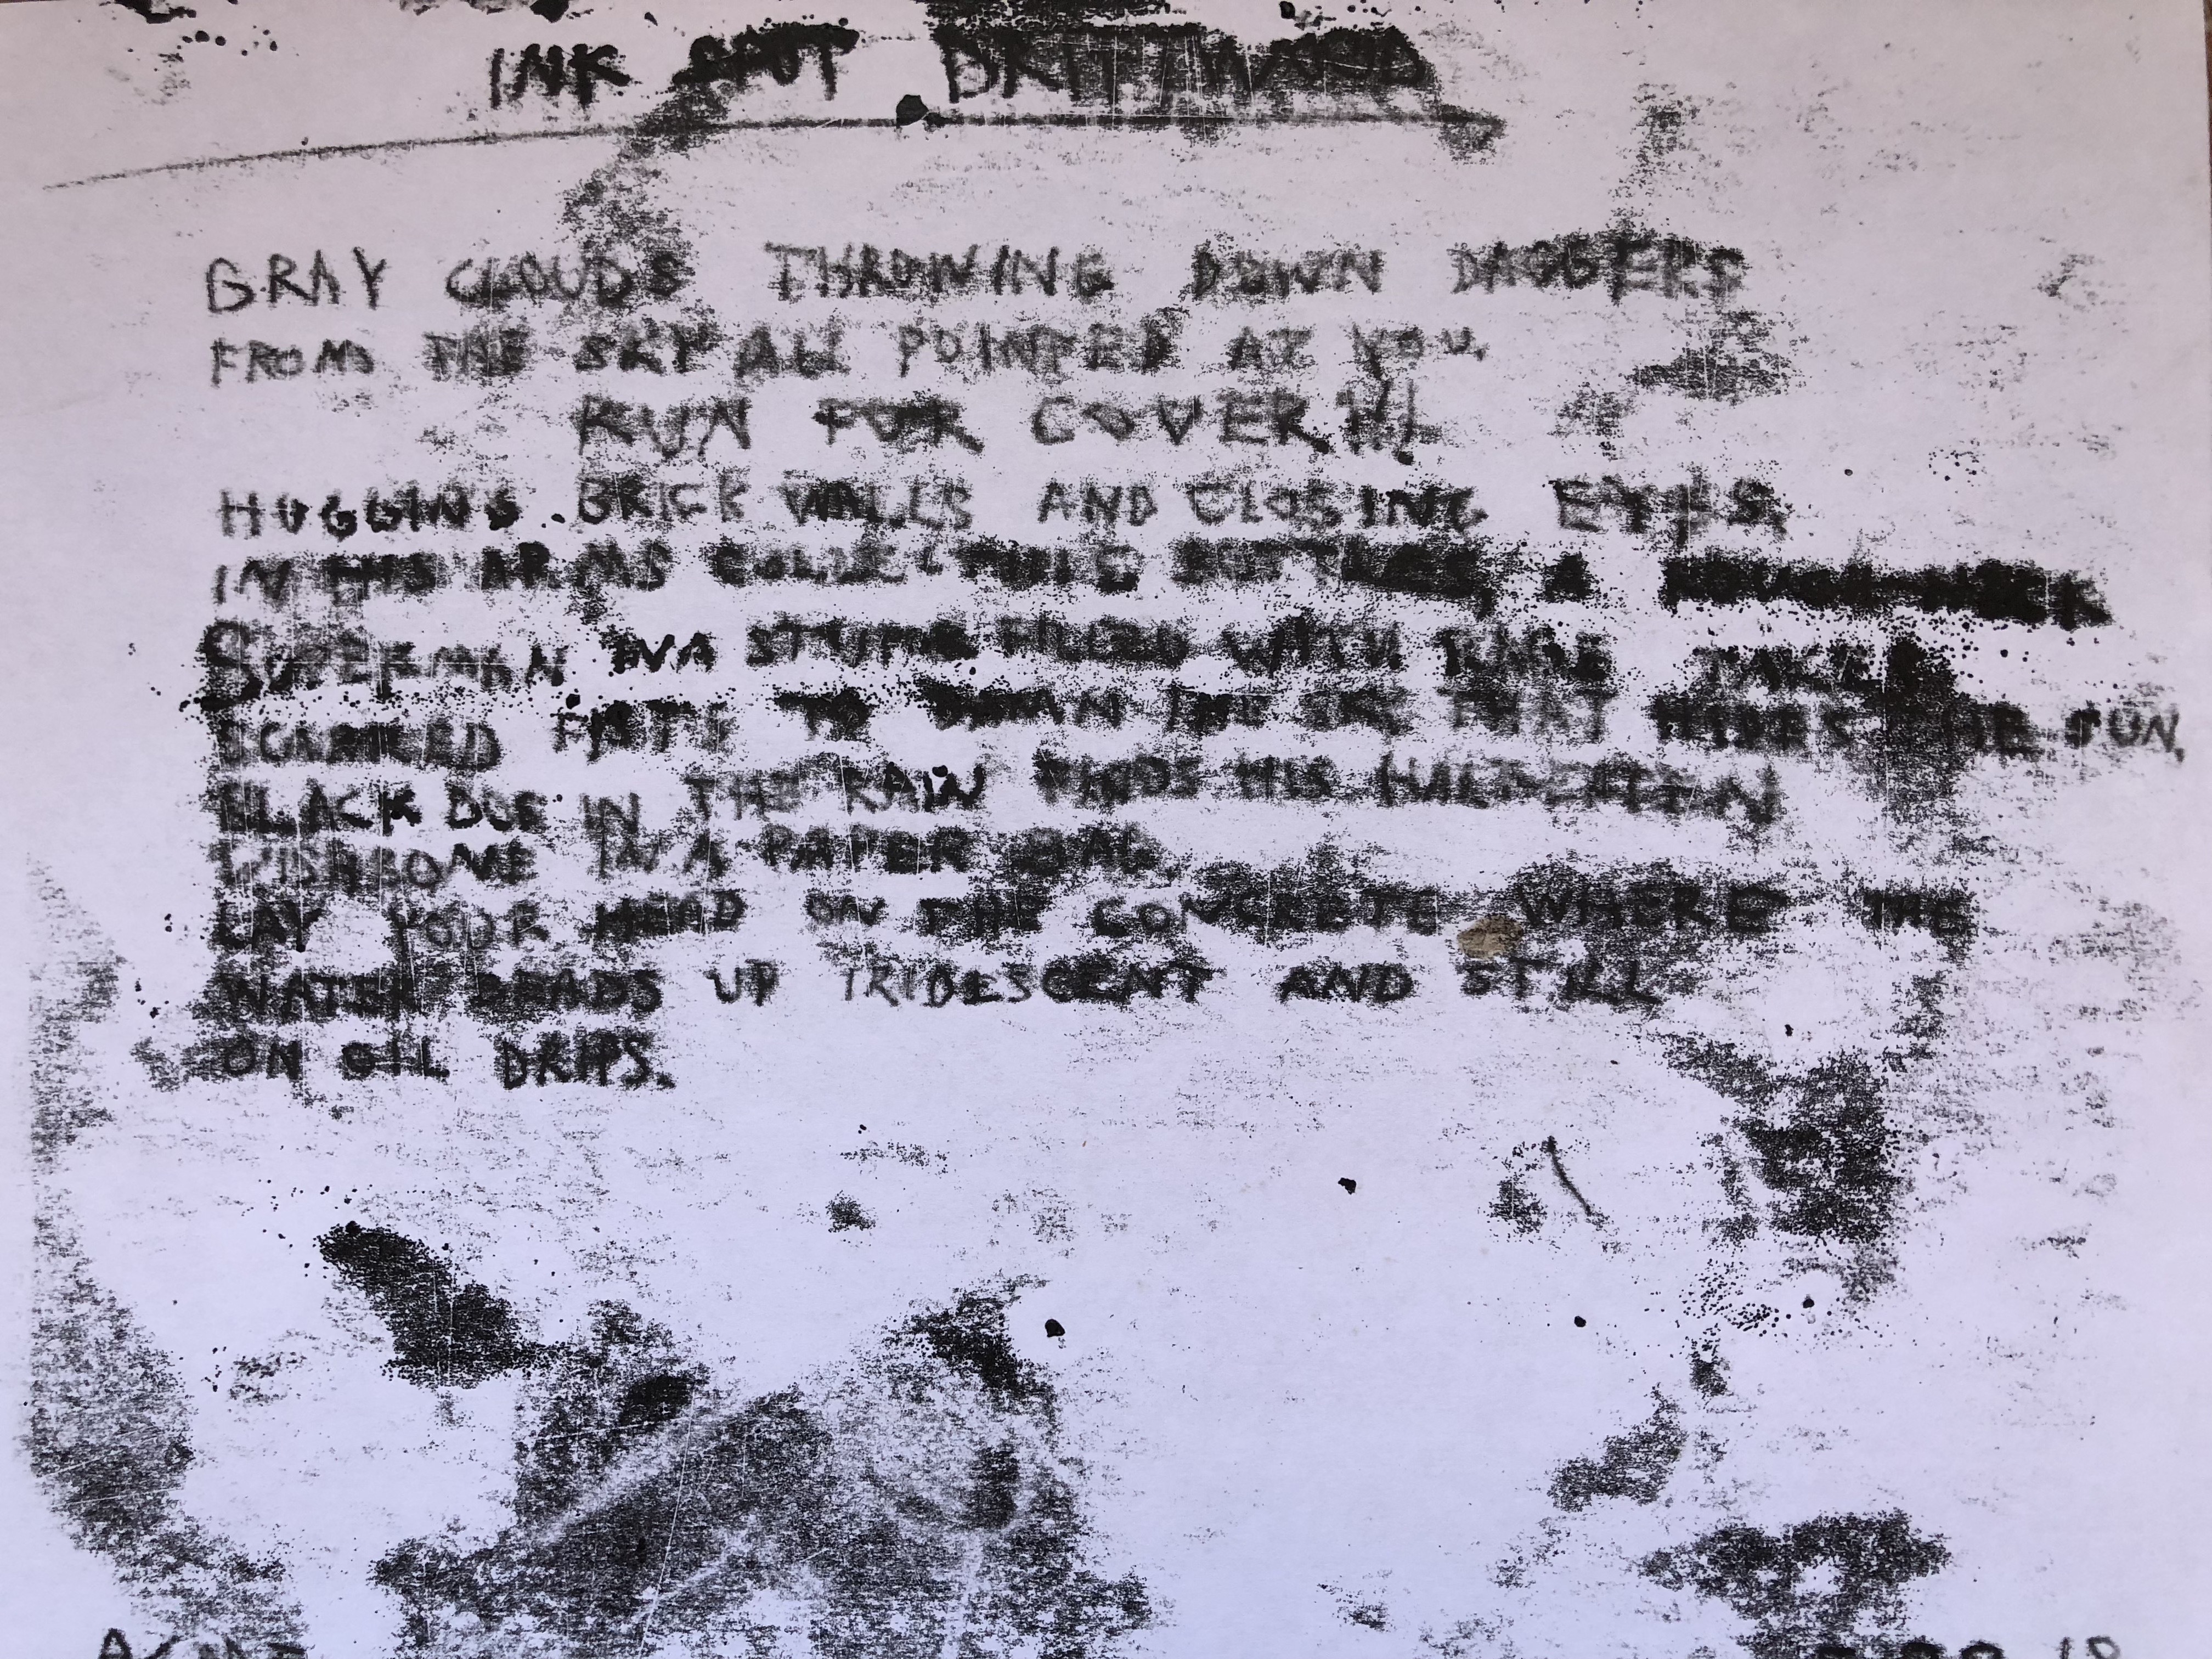 INK SPOT DRIFTWOOD
GRAY CLOUDS THROWING DOWN DAGGERS
FROM THE SKY ALL POINTED AT YOU.
RUN FOR COVER!!
HUGGING BRICK WALLS AND CLOSING EYES.
IN HIS ARMS COLLECTING BOTTLES, A
SUPERMAN IN A STUPOR FILLED WITH RAGE TAKES
SCARRED FISTS TO THE SKY THAT HIDES THE SUN.
BLACK DOG IN THE RAIN FINDS HIS HALF-EATEN
WISHBONE IN A PAPER BAG.
LAY YOUR HEAD ON THE CONCRETE WHERE THE
WATER BEADS UP IRIDESCENT AND STILL
ON OIL DRIPS.